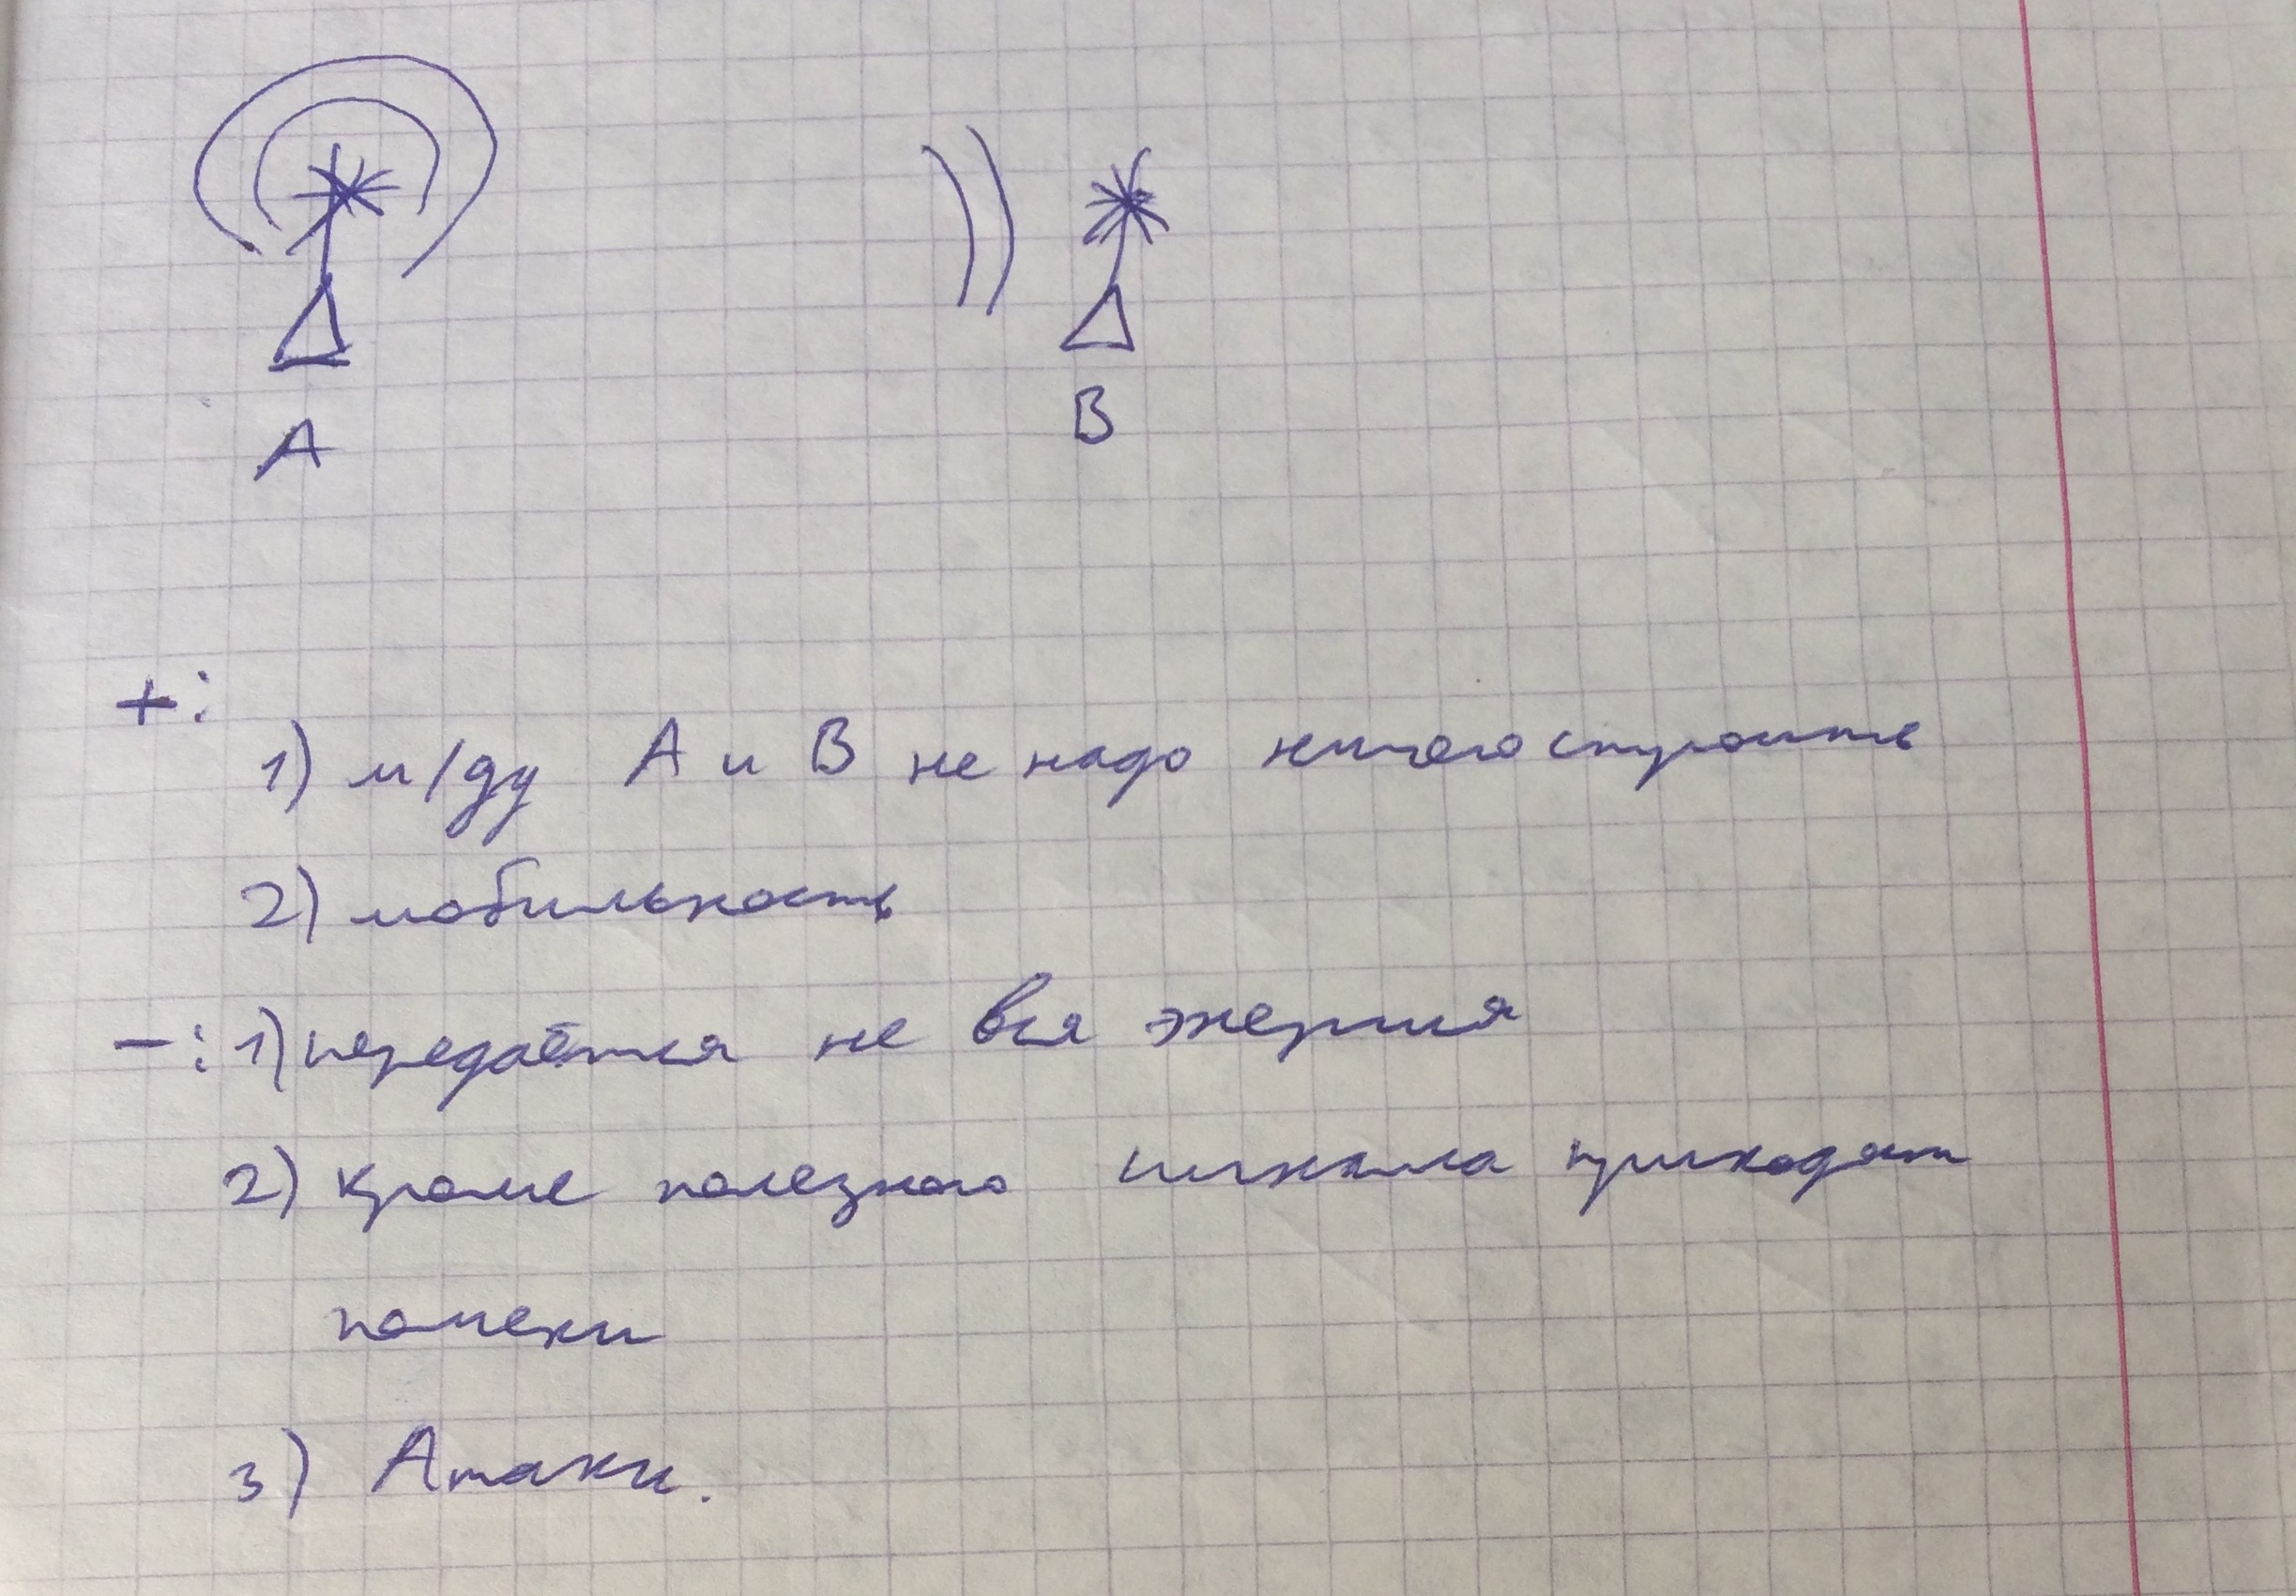 A
B
+:
1) м/ду A и B не надо ничего строить
2) мобильность
-: 1) передаётся не вся энергия
2) Кроме полезного сигнала приходят
помехи
3) Атаки.